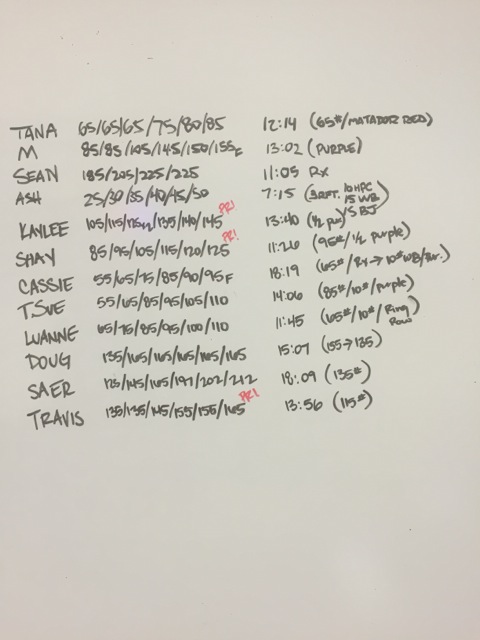 TANA 65/65/65/75/80/85 12:14 (65#/MATADOR RED)
M 85/85/105/145/150/155F 13:02 (PURPLE)
SEAN 185/205/225/225 11:05 RX
ASH 25/30/35/40/45/50 7:15 (3RFT. 10 HPC 15 WB 15 BJ)
KAYLEE 105/115/135/140/145 PR! 13:40 (1/2 pur)
SHAY 85/95/105/115/120/125 PR! 11:26 (95#/1/2 purple)
CASSIE 55/65/75/85/90/95F 18:19 (65#/RX→10#WB/Pur.)
T.SUE 55/65/85/95/105/110 14:06 (85#/10#/purple)
LUANNE 65/75/85/95/100/110 11:45 (65#/10#/Ring Row)
DOUG 135/165/165/165/165/165 15:07 (155→135)
SAER 145/165/197/202/212 18:09 (135#)
TRAVIS 135/135/145/155/155/165 PR! 13:56 (115#)